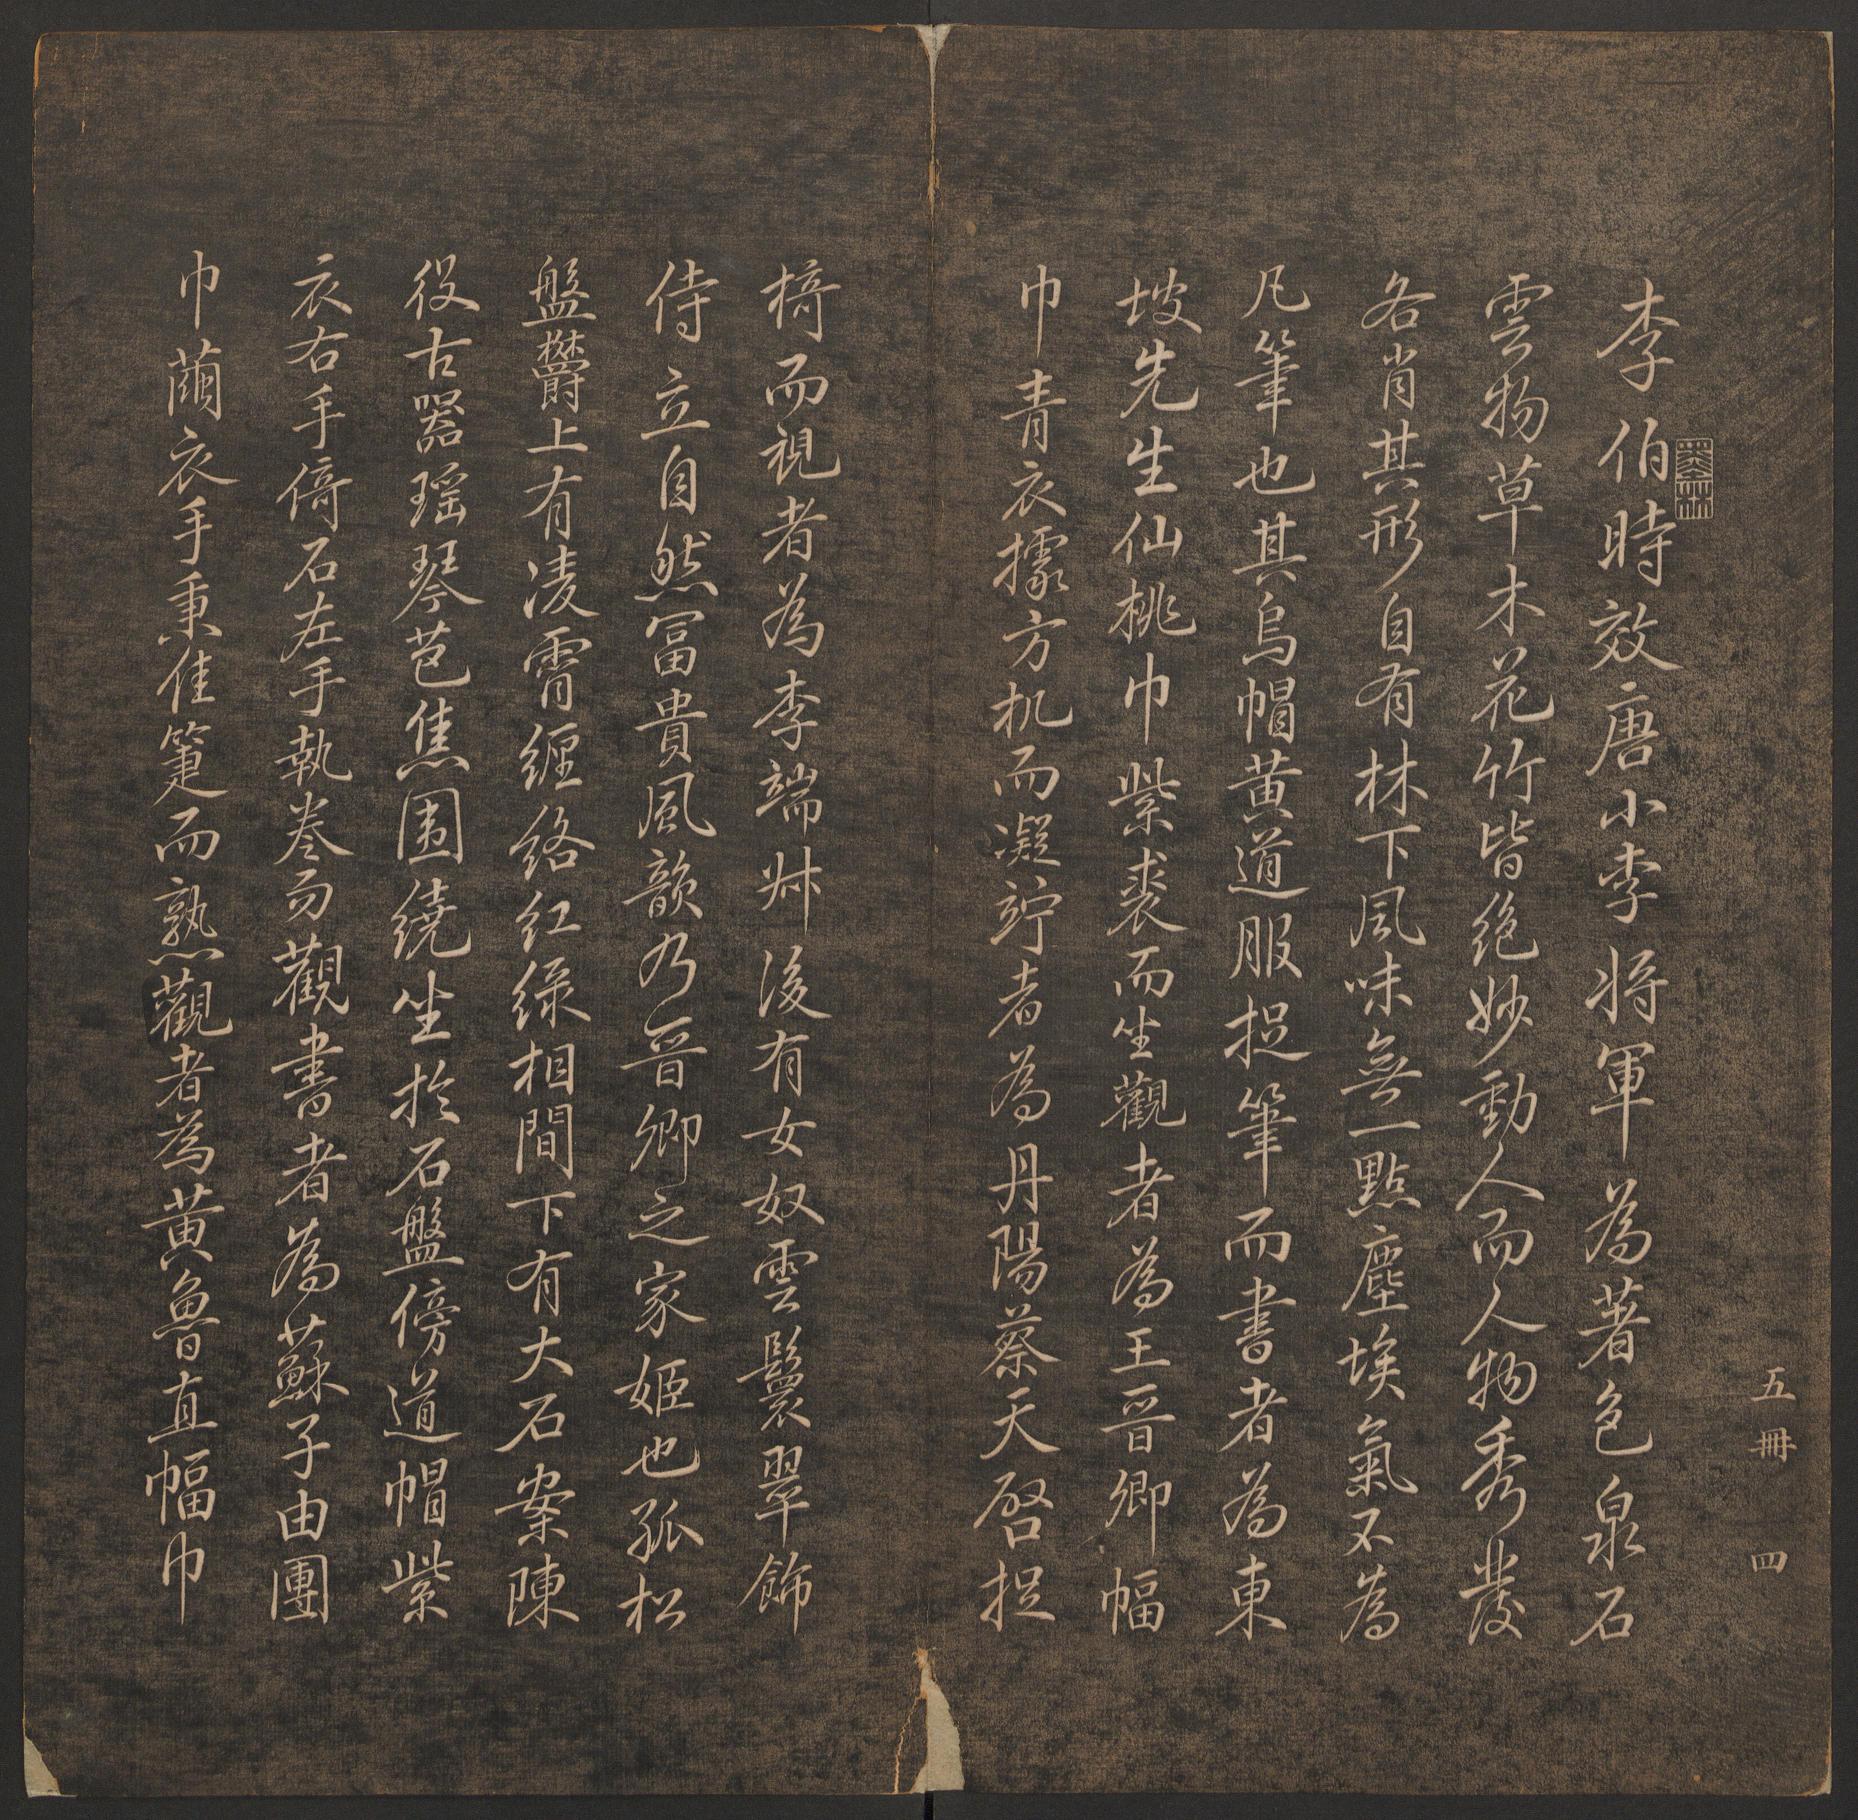 五冊 四
墨林
李伯時效唐小李將軍為著色泉石
雲物草木花竹皆絶妙動人而人物秀發
各肖其形自有林下風味無一點塵埃氣不為
凡筆也其烏帽黄道服捉筆而書者為東
坡先生仙桃巾紫裘而坐觀者為王晋卿幅
巾青衣據方机而凝竚者為丹陽蔡天啓捉
椅而視者為李端卅後有女奴雲鬟翠飾
侍立自然冨貴風韻乃晋卿之家姬也孤松
盤欝上有凌霄纒絡紅綠相間下有大石案陳
伇古器瑶琴芭焦圍繞坐於石盤傍道帽紫
衣右手倚石左手執卷而觀書者為蘇子由團
巾繭衣手秉隹箑而熟觀者為黄魯直幅巾